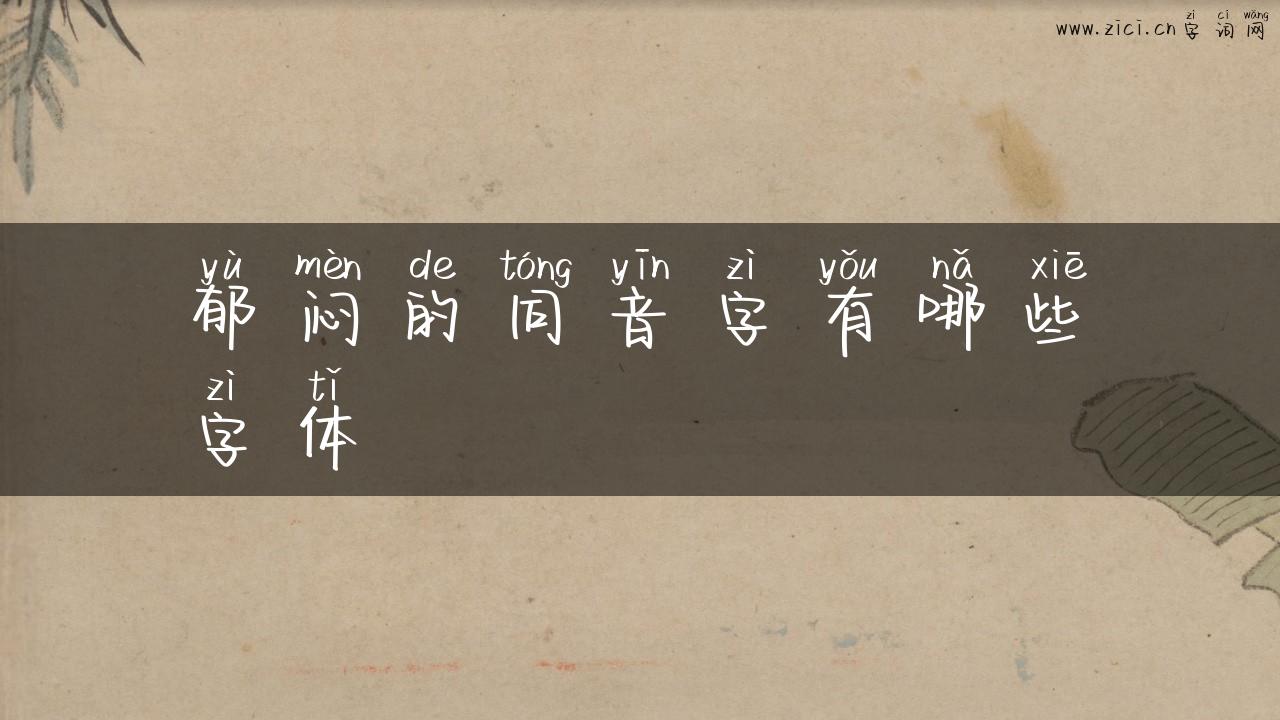 www.zici.cn zì cí wǎng
字词网
yù mèn de tóng yīn zì yǒu nǎ xiē
郁闷的同音字有哪些
zì tǐ
字体